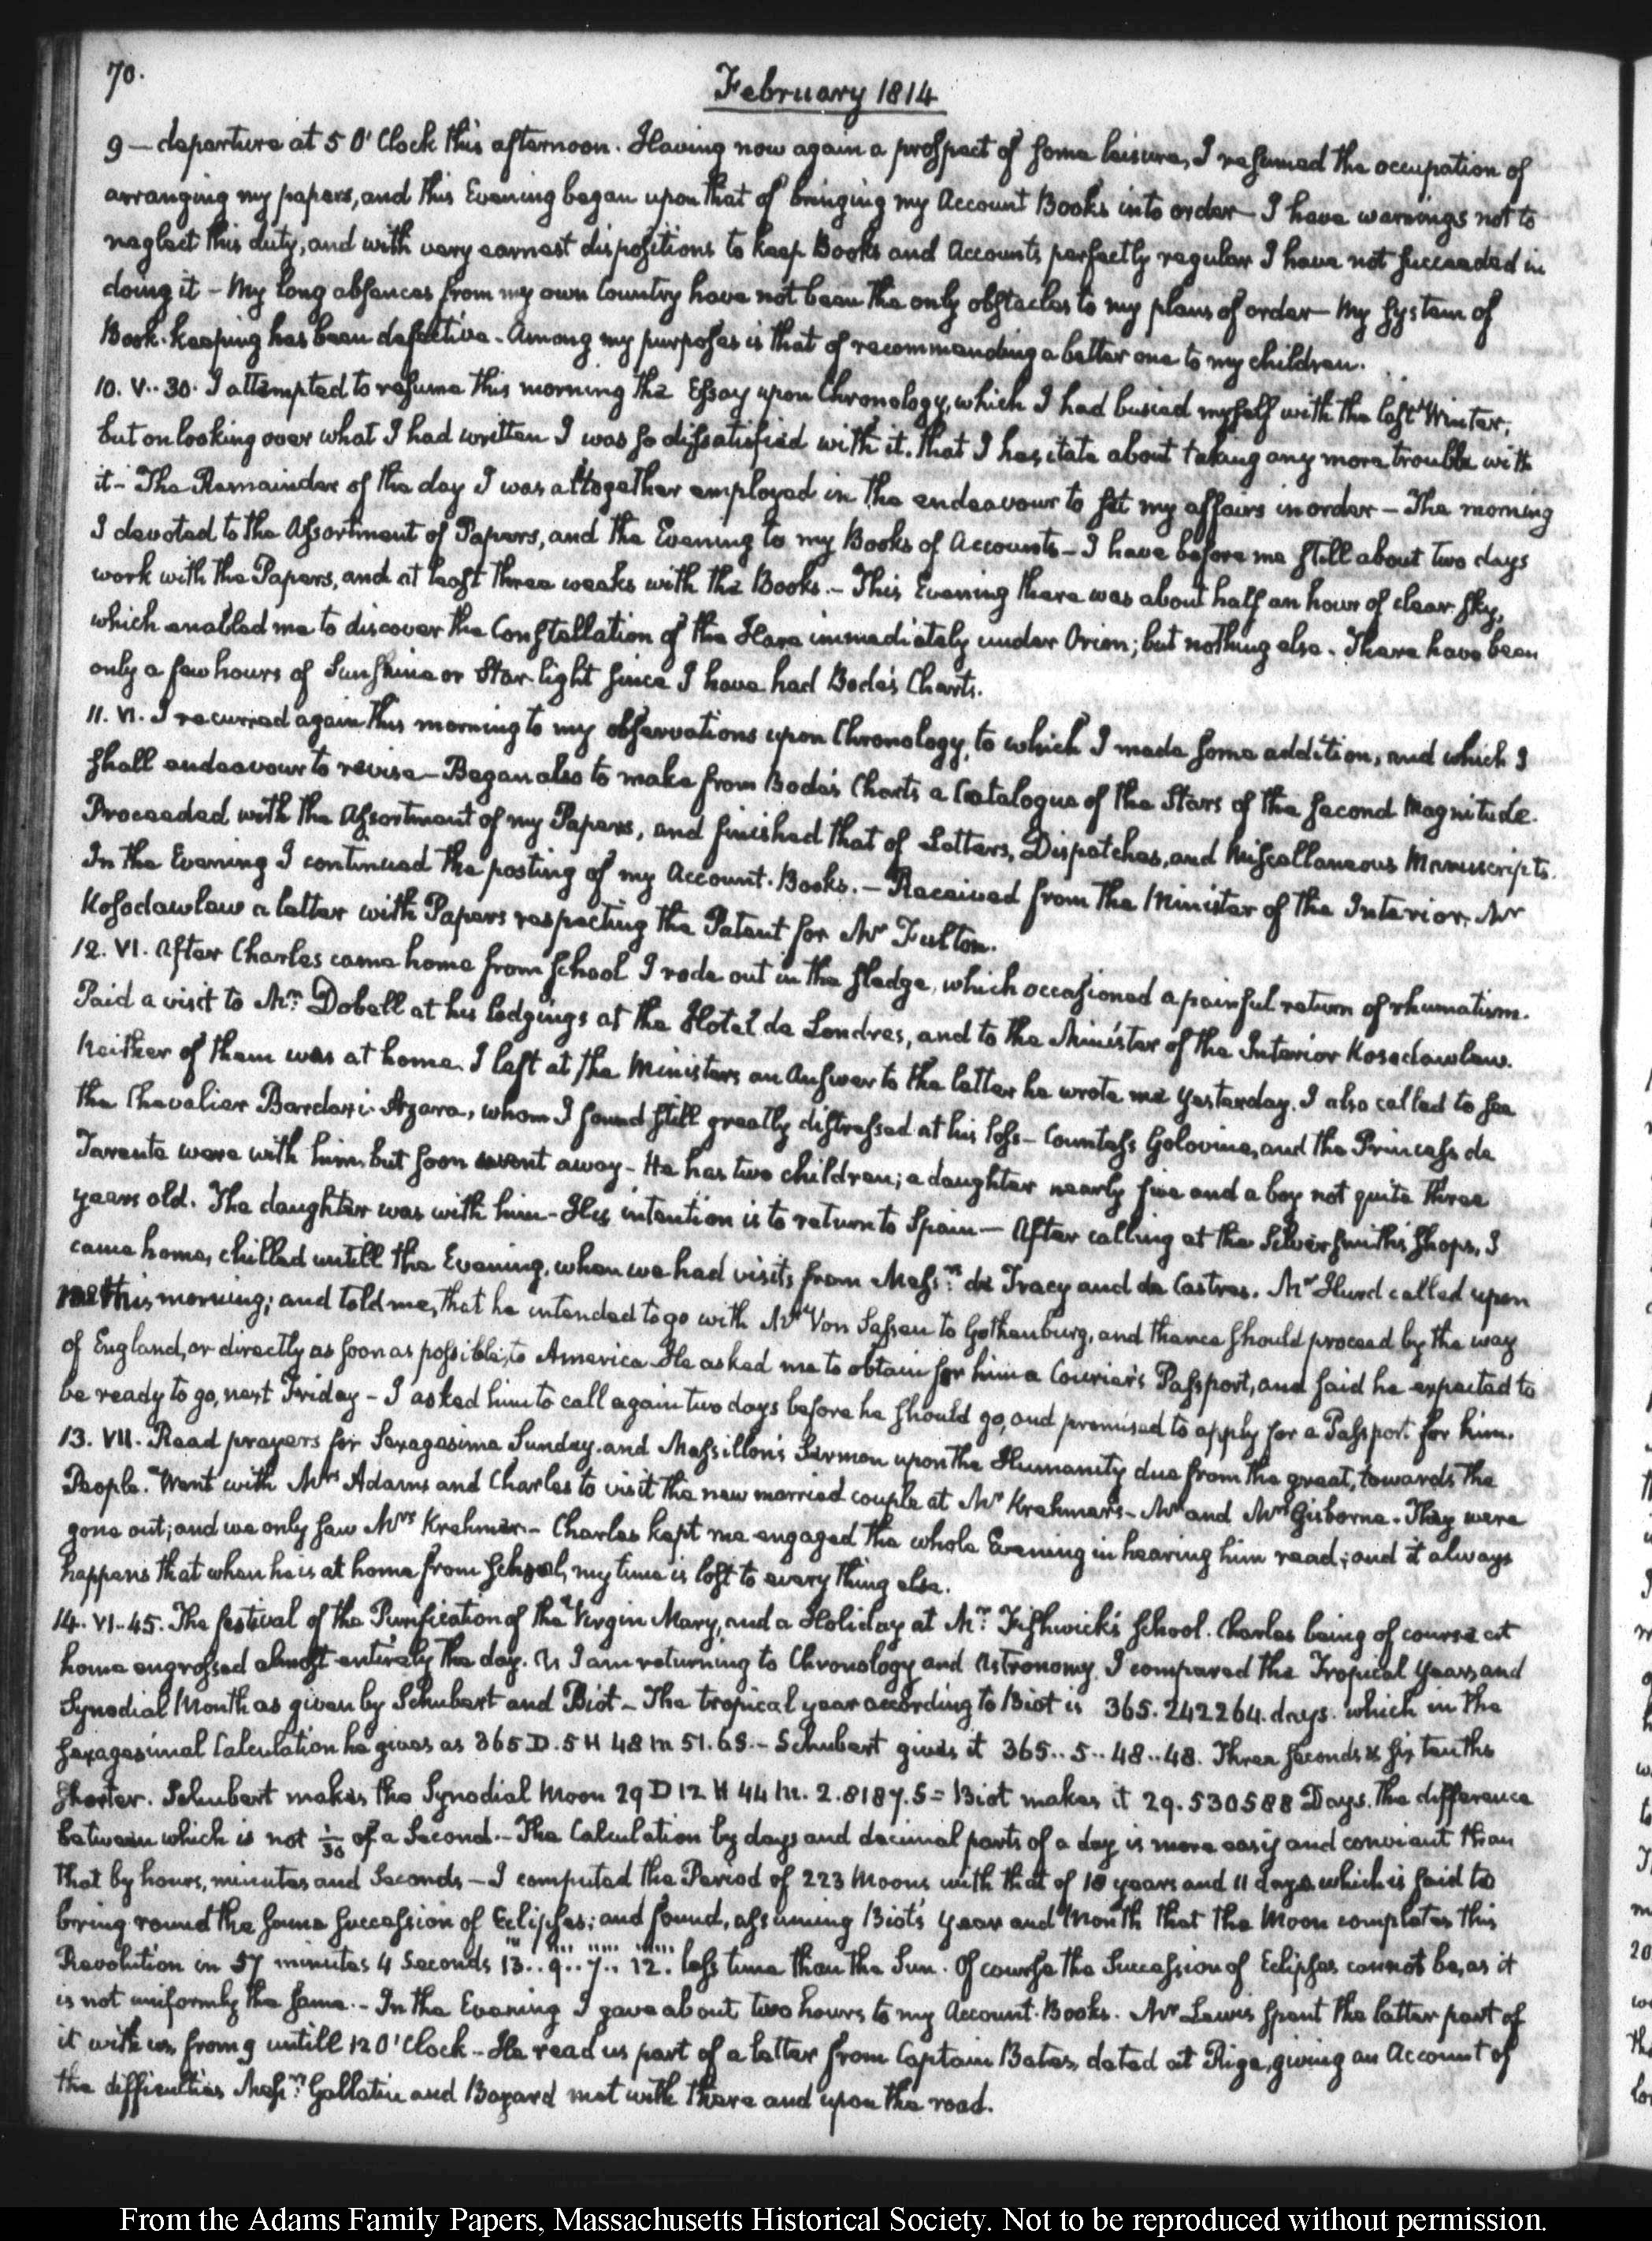 70.
February 1814
9 — departure at 5 O'Clock this afternoon. Having now again a prospect of some leisure, I resumed the occupation of
arranging my papers, and this Evening began upon that of bringing my Account Books into order — I have warnings not to
neglect this duty, and with very earnest dispositions to keep Books and Accounts perfectly regular I have not succeeded in
doing it — My long absences from my own Country have not been the only obstacles to my plans of order — My system of
Book-keeping has been defective. Among my purposes is that of recommending a better one to my children.
10. V..30. I attempted to resume this morning the Essay upon Chronology, which I had busied myself with the last Winter;
but on looking over what I had written I was so dissatisfied with it, that I hesitate about taking any more trouble with
it — The Remainder of the day I was altogether employed in the endeavour to set my affairs in order — The morning
I devoted to the Assortment of Papers, and the Evening to my Books of Accounts — I have before me still about two days
work with the Papers, and at least three weeks with the Books. — This Evening there was about half an hour of clear sky,
which enabled me to discover the Constellation of the Hare immediately under Orion; but nothing else. There have been
only a few hours of Sunshine or Star-light since I have had Bode's Charts.
11. VI. I recurred again this morning to my observations upon Chronology, to which I made some addition, and which I
shall endeavour to revise — Began also to make from Bode's Charts a Catalogue of the Stars of the second Magnitude.
Proceeded with the Assortment of my Papers, and finished that of Letters, Dispatches, and Miscellaneous Manuscripts.
In the Evening I continued the posting of my Account-Books. — Received from the Minister of the Interior, Mr
Kosodawlew a letter with Papers respecting the Patent for Mr Fulton.
12. VI. After Charles came home from school I rode out in the sledge, which occasioned a painful return of rhumatism.
Paid a visit to Mr. Dobell at his lodgings at the Hotel de Londres, and to the Minister of the Interior Kosodawlew.
Neither of them was at home. I left at the Ministers an Answer to the letter he wrote me yesterday. I also called to see
the Chevalier Bardaxi-Azara, whom I found still greatly distressed at his loss — Countess Golovine, and the Princess de
Tarente were with him, but soon went away — He has two children; a daughter nearly five and a boy not quite three
years old. The daughter was with him — His intention is to return to Spain — After calling at the Silversmith's Shops, I
came home, chilled untill the Evening, when we had visits from Messrs. de Tracy and de Castres. Mr Hurd called upon
me this morning; and told me, that he intended to go with Mr Von Sassen to Gothenburg, and thence should proceed by the way
of England, or directly as soon as possible, to America. He asked me to obtain for him a Courier's Passport, and said he expected to
be ready to go, next Friday — I asked him to call again two days before he should go, and promised to apply for a Passport for him.
13. VII. Read prayers for Sexagesima Sunday, and Massillon's Sermon upon the Humanity due from the great, towards the
People. Went with Mrs Adams and Charles to visit the new married couple at Mr Krehmer's — Mr and Mrs Gisborne. They were
gone out; and we only saw Mrs Krehmer. — Charles kept me engaged the whole Evening in hearing him read; and it always
happens that when he is at home from School, my time is lost to every thing else.
14. VI..45. The festival of the Purification of the Virgin Mary, and a Holiday at Mr. Fishwick's School. Charles being of course at
home engrossed almost entirely the day. As I am returning to Chronology and Astronomy, I compared the Tropical Years and
Synodial Month as given by Schubert and Biot — The tropical year according to Biot is 365.242264. days. which in the
sexagesimal Calculation he gives as 365 D. 5 H 48 m 51.6 S. — Schubert gives it 365..5..48..48. Three seconds & six tenths
shorter. Schubert makes the Synodial Moon 29 D 12 H 44 m. 2.8187. S = Biot makes it 29.530588 Days. The difference
between which is not 1/30 of a Second. — The Calculation by days and decimal parts of a day is more easy and conviant than
that by hours, minutes and Seconds — I computed the Period of 223 Moons with that of 18 years and 11 days which is said to
bring round the same succession of Eclipses; and found, assuming Biot's Year and Month that the Moon completes this
Revolution in 57 minutes 4 Seconds 13..9..7..12. less time than the Sun. Of course the Succession of Eclipses cannot be, as it
is not uniformly the same. — In the Evening I gave about two hours to my Account-Books. Mr Lewis spent the latter part of
it with us, from 9 untill 12 O'Clock — He read us part of a letter from Captain Bates, dated at Riga, giving an Account of
the difficulties Messrs. Gallatin and Bayard met with there and upon the road.
From the Adams Family Papers, Massachusetts Historical Society. Not to be reproduced without permission.